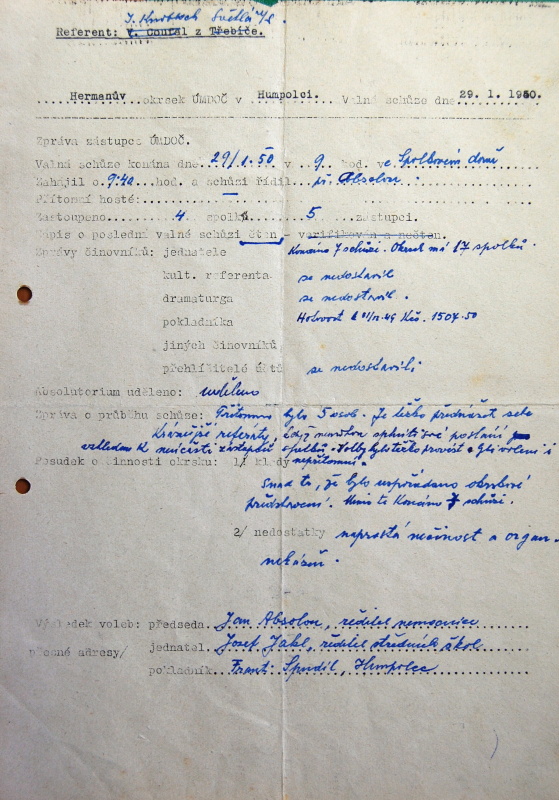 J. Světlá n/S.
Referent: V. Coufal z Třebíče.
Hermanův okrsek ÚMDOČ v Humpolci. Valná schůze dne 29. 1. 1950.
Zpráva zástupce ÚMDOČ.
Valná schůze konána dne 29/1.50 v 9. hod. ve Spolkovém domě
Zahájil o 9:40 hod. a schůzi řídil př. Absolon.
Přítomni hosté: —
Zastoupeno 4 spolků 5 zástupci.
Zápis o poslední valné schůzi čten - verifikován a nečten.
Zprávy činovníků: jednatele Konáno 7 schůzí. Okrsek má 17 spolků.
kult. referenta se nedostavil
dramaturga se nedostavil.
pokladníka Hotovost k 31/12.49 Kčs. 1504.50
jiných činovníků
přehlížitelé účtů se nedostavili
Absolutorium uděleno: uděleno
Zpráva o průběhu schůze: Přítomno bylo 5 osob. Je těžko přednášet zde
referáty, když nemohou splniti své poslání
vzhledem k neúčasti zástupců spolků. Volby bylo těžko provést a byli voleni i
nepřítomní.
Posudek o činnosti okrsku: 1/ klady
Snad to, že bylo uspořádáno okrskové
představení. Mimo to konáno 7 schůzí.
2/ nedostatky naprostá nečinnost a organ.
nekázeň.
Výsledek voleb: předseda Jan Absolon, ředitel nemocnice
přesné adresy/ jednatel Josef Jákl, ředitel středních škol
pokladník Frant. Spudil, Humpolec